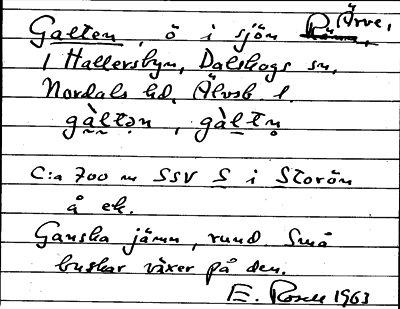 Galten, ö i sjön Ärve,
i Hallersbyn, Dalskogs sn,
Nordals hd, Älvsb l.
gàltən, gàltn̥
C:a 700 m SSV S i Storön
å ek.
Ganska jämn, rund. Små
buskar växer på den.
E. Rosell 1963